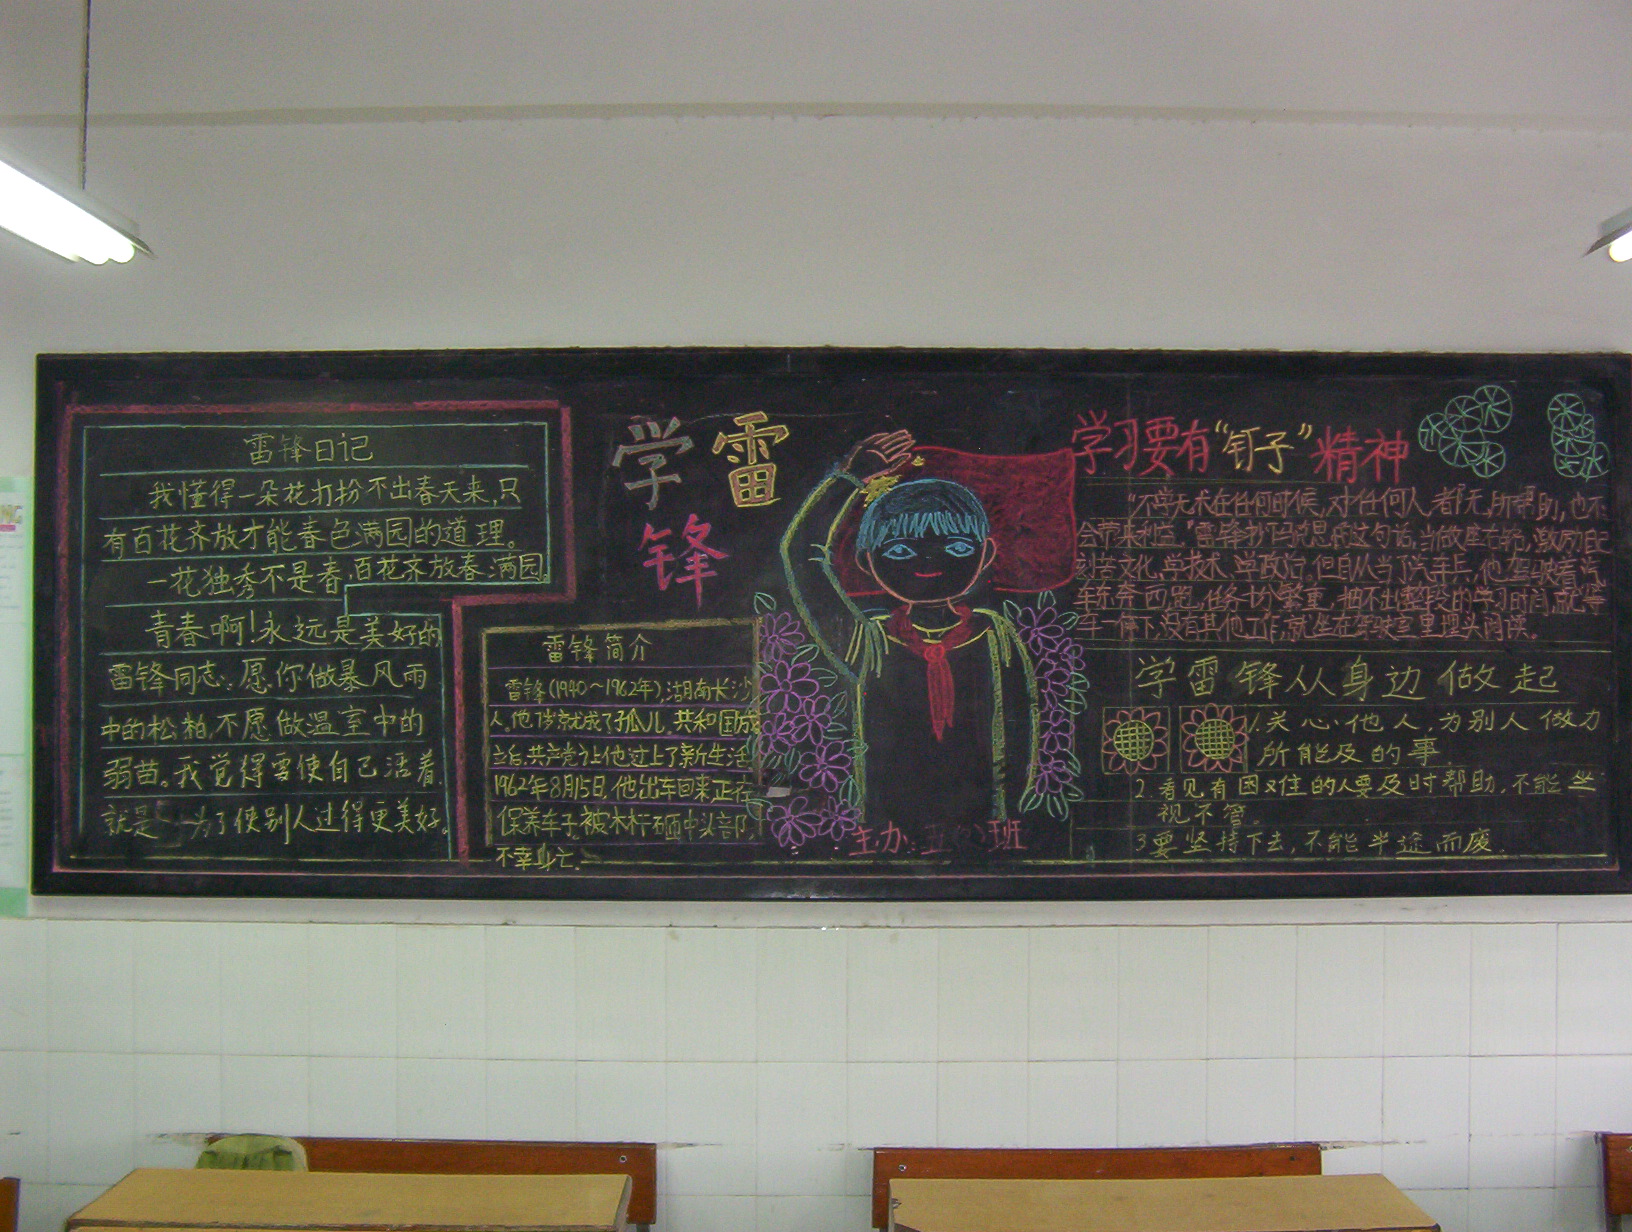 雷锋日记
我懂得一朵花打扮不出春天来,只
有百花齐放才能春色满园的道理。
一花独秀不是春,百花齐放春满园。
青春啊!永远是美好的
雷锋同志:愿你做暴风雨
中的松柏,不愿做温室中的
弱苗。我觉得要使自己活着,
就是 为了使别人过得更美好。
学雷
锋
雷锋简介
雷锋(1940~1962年),湖南长沙
人。他7岁就成了孤儿。共和国成
立后,共产党让他过上了新生活
1962年8月15日,他出车回来正在
保养车子,被木杆砸中头部,
不幸身亡。
主办:五 班
学习要有“钉子”精神
“不学无术在任何时候,对任何人,都无所帮助,也不
会带来利益。”雷锋抄马克思的这句话,当做座右铭,激励自己
刻苦学文化,学技术,学政治。但自从当了汽车兵,他驾驶着汽
车东奔西跑,任务十分繁重,抽不出整段的学习时间,就等
车一停下,没有其他工作,就坐在驾驶室里埋头阅读。
学雷锋从身边做起
1.关心他人,为别人做力
所能及的事.
2.看见有困难住的人要及时帮助,不能坐
视不管。
3要坚持下去,不能半途而废.